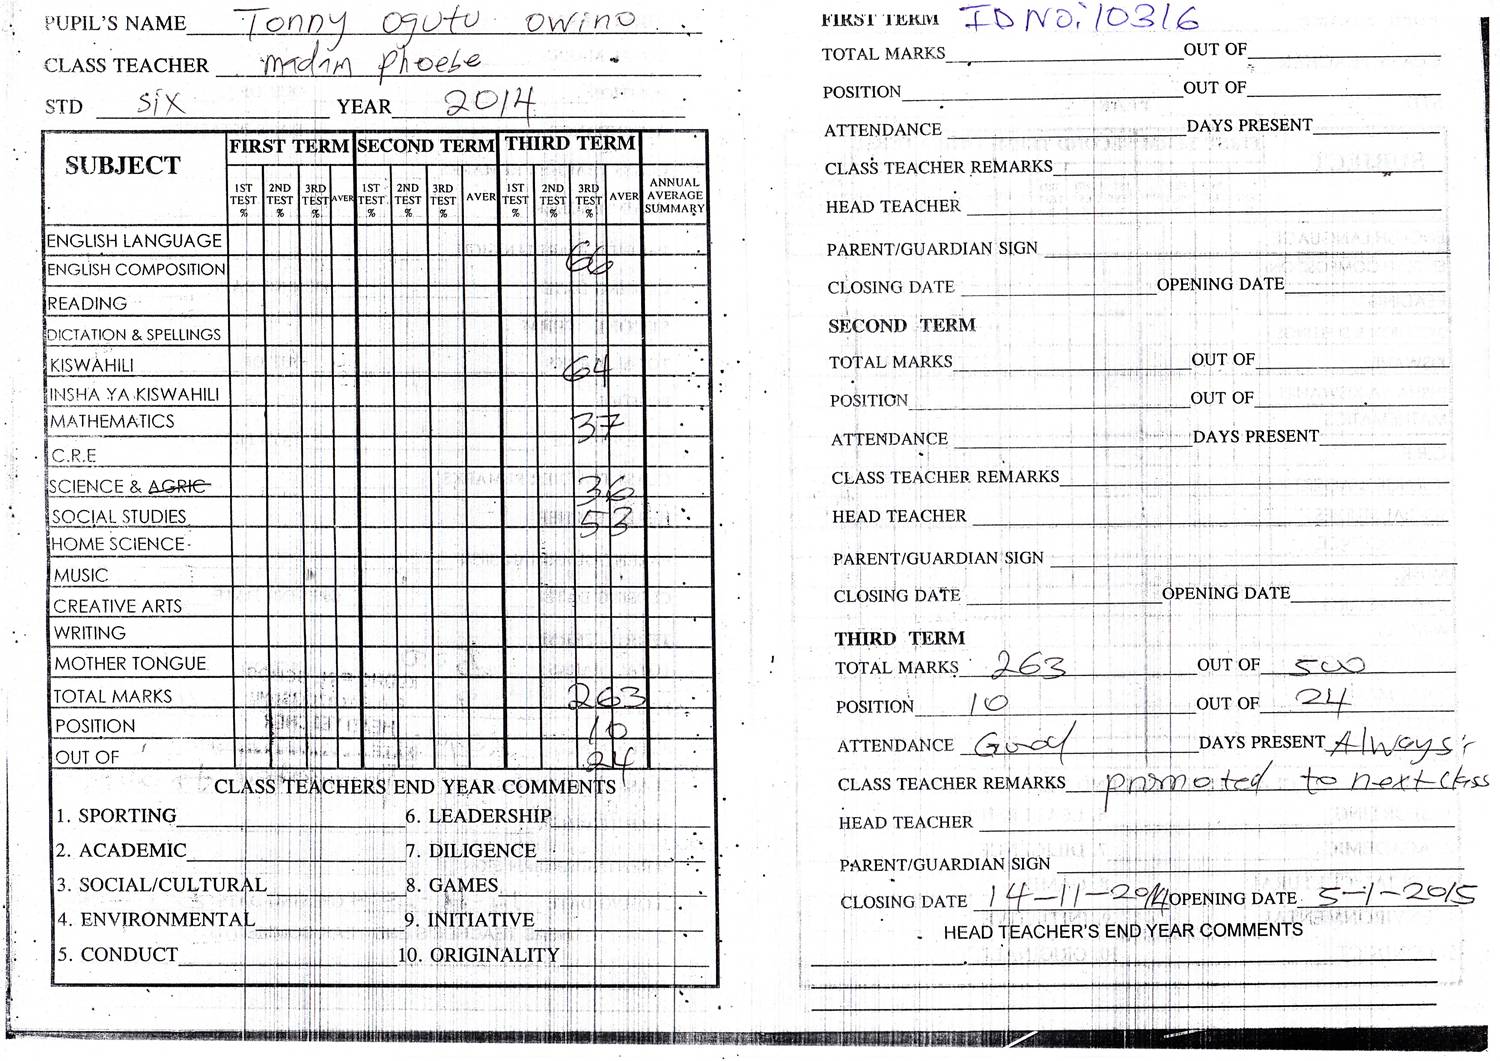 PUPIL'S NAME Tonny Ogutu Owino
CLASS TEACHER madam phoebe
STD Six YEAR 2014
SUBJECT FIRST TERM SECOND TERM THIRD TERM
1ST TEST % 2ND TEST % 3RD TEST % AVER 1ST TEST % 2ND TEST % 3RD TEST % AVER 1ST TEST % 2ND TEST % 3RD TEST % AVER ANNUAL AVERAGE SUMMARY
ENGLISH LANGUAGE
ENGLISH COMPOSITION 66
READING
DICTATION & SPELLINGS
KISWAHILI 64
INSHA YA KISWAHILI
MATHEMATICS 37
C.R.E
SCIENCE & AGRIC 36
SOCIAL STUDIES 53
HOME SCIENCE
MUSIC
CREATIVE ARTS
WRITING
MOTHER TONGUE
TOTAL MARKS 263
POSITION 10
OUT OF 24
CLASS TEACHERS END YEAR COMMENTS
1. SPORTING 6. LEADERSHIP
2. ACADEMIC 7. DILIGENCE
3. SOCIAL/CULTURAL 8. GAMES
4. ENVIRONMENTAL 9. INITIATIVE
5. CONDUCT 10. ORIGINALITY
FIRST TERM ID NO: 10316
TOTAL MARKS OUT OF
POSITION OUT OF
ATTENDANCE DAYS PRESENT
CLASS TEACHER REMARKS
HEAD TEACHER
PARENT/GUARDIAN SIGN
CLOSING DATE OPENING DATE
SECOND TERM
TOTAL MARKS OUT OF
POSITION OUT OF
ATTENDANCE DAYS PRESENT
CLASS TEACHER REMARKS
HEAD TEACHER
PARENT/GUARDIAN SIGN
CLOSING DATE OPENING DATE
THIRD TERM
TOTAL MARKS 263 OUT OF 500
POSITION 10 OUT OF 24
ATTENDANCE Good DAYS PRESENT Always
CLASS TEACHER REMARKS promoted to next class
HEAD TEACHER
PARENT/GUARDIAN SIGN
CLOSING DATE 14-11-2014 OPENING DATE 5-1-2015
HEAD TEACHER'S END YEAR COMMENTS